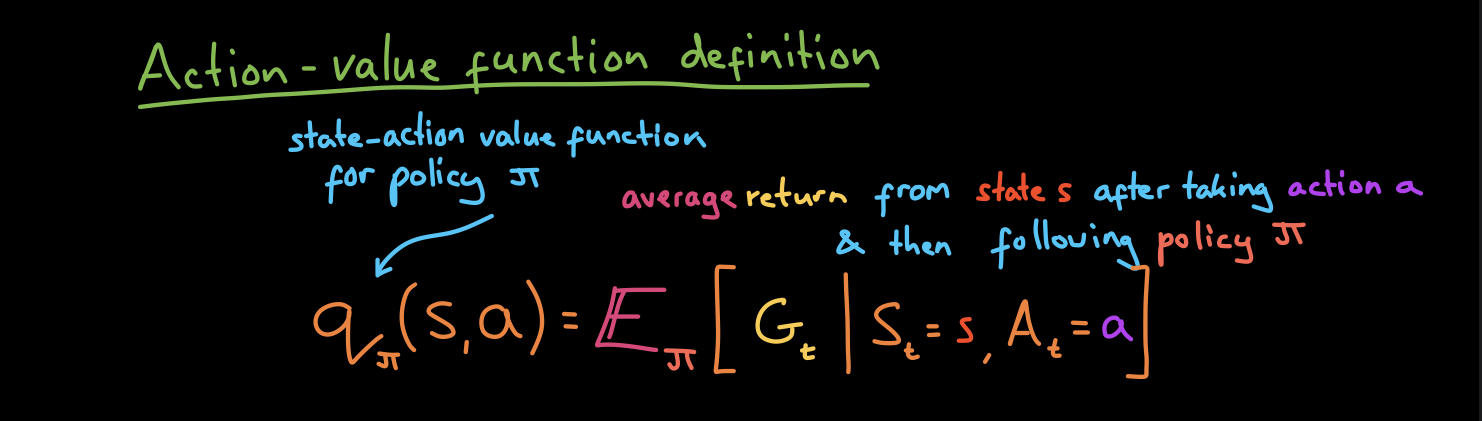 Action-value function definition
state-action value function
for policy π
average return from state s after taking action a
& then following policy π
qπ(s,a) = 𝔼π [ Gt | St = s, At = a ]